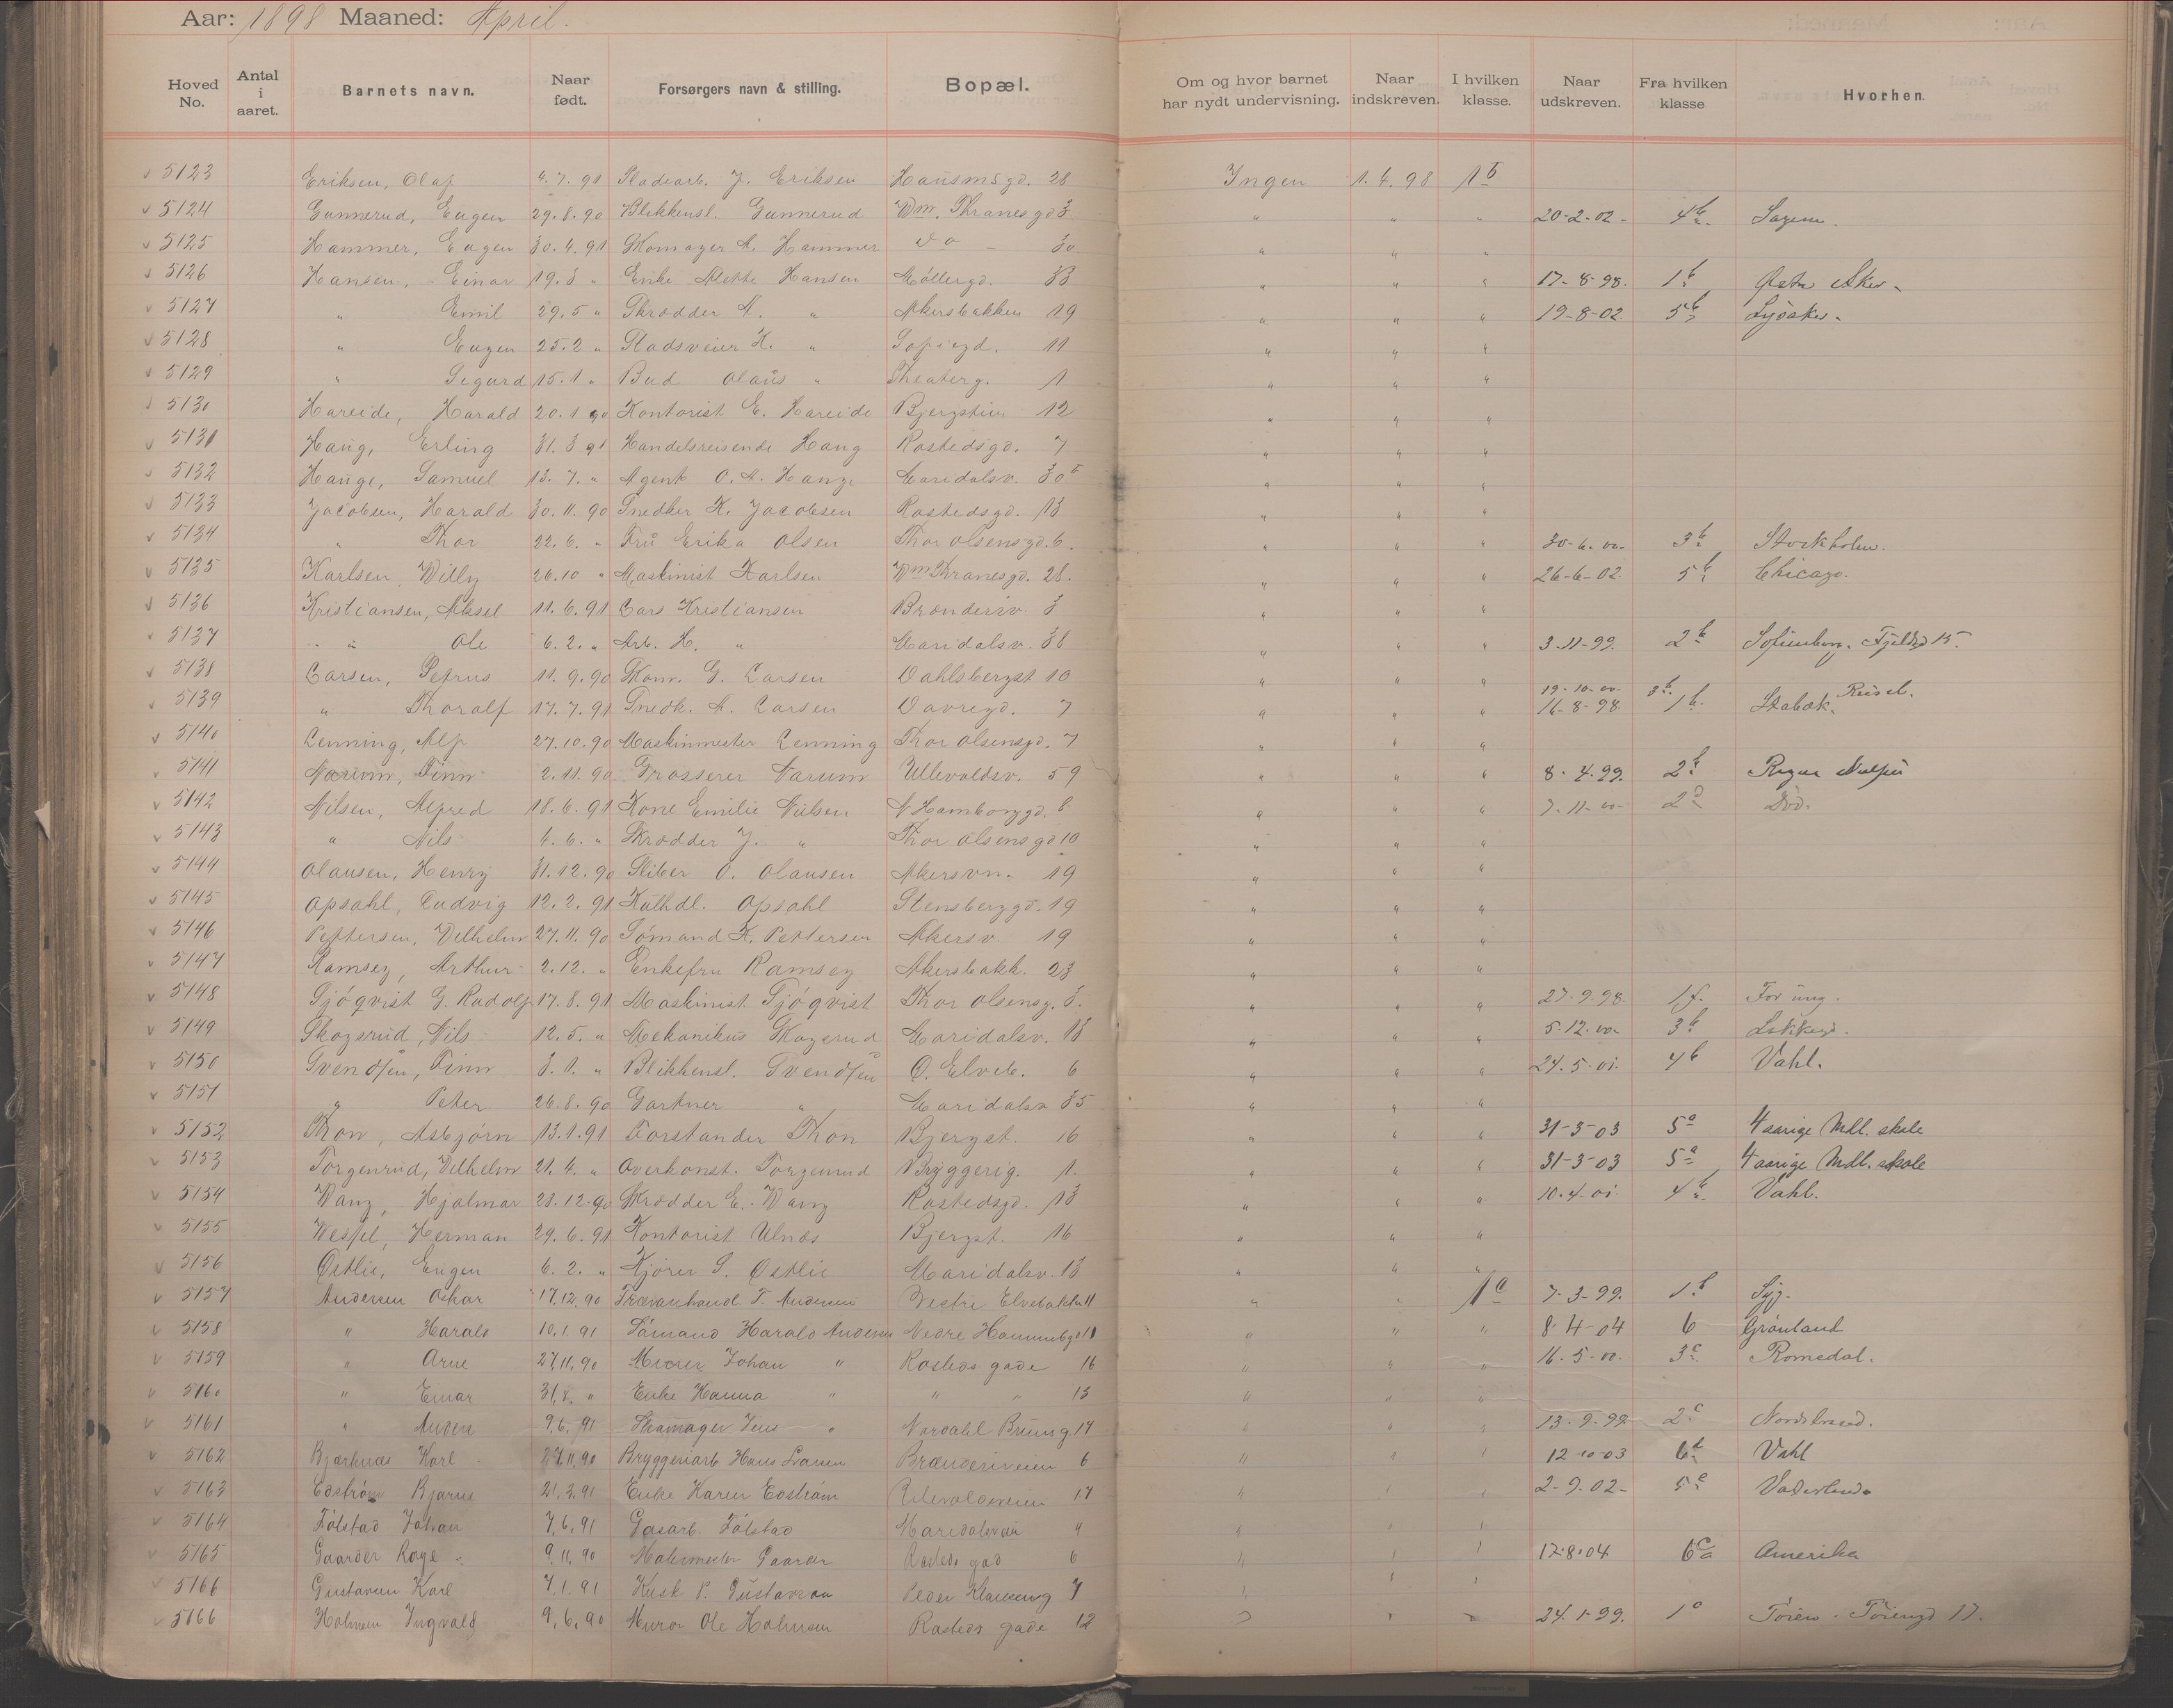 Aar: 1898 Maaned: April.
Hoved No. Antal i aaret. Barnets navn. Naar født. Forsørgers navn & stilling. Bopæl. Om og hvor barnet har nydt undervisning. Naar indskreven. I hvilken klasse. Naar udskreven. Fra hvilken klasse Hvorhen.
5123 Eriksen, Olaf 4.7.91 Pladearb. J. Eriksen Hausmsgd. 28 Ingen 1.4.98 1b
5124 Gunnerud, Eugen 29.8.90 Blikkensl. Gunnerud Wm. Thranesgd 3 " " " 20-2-02- 4b Sagene.
5125 Hammer, Eugen 30.4.91 Skomager A. Hammer do 30 " " "
5126 Hansen, Einar 19.3 " Enke Mette Hansen Møllergd. 33 " " " 17-8-98. 1b Østre Aker.
5127 " Emil 29.5 " Skrædder A. " Akersbakken 19 " " " 19-8-02. 5b Lysaker.
5128 " Eugen 25.2 " Stadsveier K. " Sofiegd. 11 " " "
5129 " Sigurd 15.1 " Bud Olaus " Theaterg. 1 " " "
5130 Hareide, Harald 20.1 90 Kontorist E. Hareide Bjergstien 12 " " "
5131 Haug, Erling 31.3 91 Handelsreisende Haug Rostedsgd. 7 " " "
5132 Hauge, Samuel 13.7. " Agent O. A. Hauge Maridalsv. 30b " " "
5133 Jacobsen, Harald 30.11.90 Snedker K. Jacobsen Rostedsgd. 13 " " "
5134 " Thor 22.6. " Fru Erika Olsen Thor Olsensgd. 6. " " " 30-6-00- 3b Stockholm.
5135 Karlsen, Willy 26.10 " Maskinist Karlsen Wm Thranesgd. 28. " " " 26-6-02. 5b Chicago.
5136 Kristiansen, Aksel 11.6.91 Lars Kristiansen Brænderiv. 3 " " "
5137 " Ole 6.2. " Arb. H. " Maridalsv. 38 " " " 3-11-99. 2b Sofienberg. Fjeldgd 15.
5138 Larsen, Petrus 11.9.90 Skom. G. Larsen Dahlsbergst 10 " " " 19-10-00- 3b.
5139 " Thoralf 17.7.91 Snedk. A. Larsen Dovregd. 7 " " " 16-8-98. 1b. Stabæk.
5140 Lenning, Alf 27.10.90 Maskinmester Lenning Thor Olsensgd. 7 " " "
5141 Narum, Finn 2.11.90 Grosserer Narum Ullevoldsv. 59 " " " 8-4-99. 2b
5142 Nilsen, Alfred 18.6.91 Kone Emilie Nilsen N Hamborggd. 8 " " " 7-11-00- 2b Død.
5143 " Nils 4.6. " Skrædder J. " Thor Olsensgd 10 " " "
5144 Olausen, Henry 31.12.90 Sliber O. Olausen Akersvn. 19 " " "
5145 Opsahl, Ludvig 12.2.91 Kulhdl. Opsahl Stensberggd. 19 " " "
5146 Pettersen, Vilhelm 27.11.90 Sømand K. Pettersen Akersv. 19 " " "
5147 Ramsey, Arthur 2.12. " Enkefru Ramsey Akersbakk. 23 " " "
5148 Sjøqvist G. Rudolf 17.8.91 Maskinist Sjøqvist Thor Olsensg. 3. " " " 27-9-98. 1b. For ung.
5149 Skogsrud, Nils 12.5. " Mekanikus Skogsrud Maridalsv. 13 " " " 5-12-00- 3b Lakkegd.
5150 Svendsen, Finn 3.1. " Blikkensl. Svendsen Ø. Elveb. 6 " " " 24.5-01. 4b Vahl.
5151 " Peter 26.8.90 Gartner " Maridalsv 35 " " "
5152 Thon, Asbjørn 13.1.91 Forstander Thon Bjergst. 16 " " " 31-3-03 5a 4 aarige Mdl. skole
5153 Torgenrud, Vilhelm 21.4. " Overkonst. Torgenrud Bryggerig. 1. " " " 31-3-03 5a 4 aarige Mdl. skole
5154 Wang, Hjalmar 21.12.90 Skrædder E. Wang Rostedsgd. 13 " " " 10-4-01. 4b Vahl.
5155 Wessel, Herman 29.6.91 Kontorist Ulnæs Bjergst. 16 " " "
5156 Østlie, Eugen 6.2. " Kjører S. Østlie Maridalsv. 13 " " "
5157 Andersen Oskar 17.12.90 Trævarehandl. T. Andersen Vestre Elvebakke 11 " " 1c 7-3-99. 1b Syg.
5158 " Harald 10.1.91 Sømand Harald Andersen Nedre 11 " " " 8-4-04 6 Grønland
5159 " Arne 27.11.90 Murer Johan " Rosteds gade 16 " " " 16-5-00. 3c Romedal.
5160 " Einar 31.8. " Enke Hanna " " " 13 " " "
5161 " Anders 9.6.91 Skomager Jens " Nordahl Brunsg 14 " " " 13-9-99. 2c Nordstrand.
5162 Bjerknæs Karl 27.11.90 Bryggeriarb Hans Larsen Brænderiveien 6 " " " 12-10-03 6b Vahl
5163 Edstrøm Bjarne 21.3.91 Enke Karen Edstrøm Ullevoldsveien 17 " " " 2-9-02- 5c
5164 Følstad Johan 7.6.91 Gasarb. Følstad Maridalsveien 4 " " "
5165 Gaarder Roge 9.11.90 Malermester Gaarder Rosteds gad 6 " " " 17.8.04 6c Amerika
5166 Gustavsen Karl 7.1.91 Kusk P. Gustavson Peder 7 " " "
5166 Holmsen Ingvald 9.6.90 Murer Ole Holmsen Rosteds gade 12 " " " 24.1-99. 1c Tøien. Tøiengd 17.